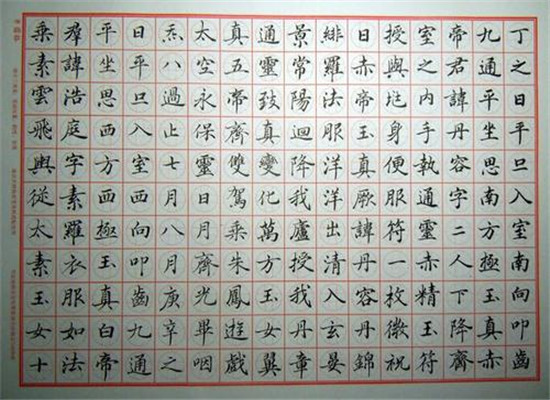 丁之日平旦入室南向叩齒
九通平坐思南方極玉真赤
帝君諱丹容字二人下降齊
室之內手執通靈赤精玉符
授與兆身便服符一枚微祝
日赤帝玉真厥諱丹容丹錦
緋羅法服洋洋出清入玄晏
景常陽迴降我廬授我丹章
通靈致真變化萬方玉女翼
真五帝齊雙駕乘朱鳳遊戲
太空永保靈日月齊光畢咽
炁八過止七月八月庚辛之
日平旦入室西向叩齒九通
平坐思西方西極玉真白帝
羣諱浩庭字素羅衣服如法
乘素雲飛輿從太素玉女十